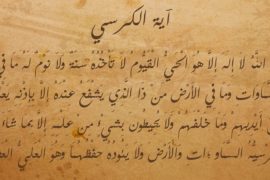 آية الكرسي
اللَّهُ لَا إِلَهَ إِلَّا هُوَ الْحَيُّ الْقَيُّومُ لَا تَأْخُذُهُ سِنَةٌ وَلَا نَوْمٌ لَهُ مَا
ماوات وَمَا فِي الْأَرْضِ مَن ذَا الَّذِي يَشْفَعُ عِنْدَهُ إِلَّا بِإِذْنِهِ يع
أَيْدِيهِمْ وَمَا خَلْفَهُمْ وَلَا يُحِيطُونَ بِشَيْءٍ مِنْ عِلْمِهِ إِلَّا بِمَا شَاءَ
وَالْأَرْضَ وَلَا يَئُودُهُ حِفْظُهُمَا وَهُوَ الْعَلِيُّ العظ